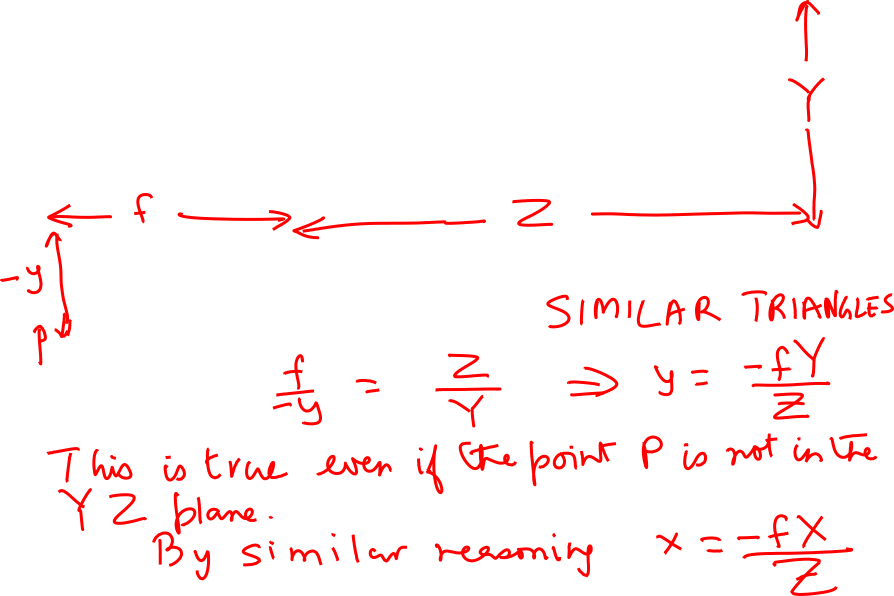 Y
f Z
-y
p
SIMILAR TRIANGLES
f/-y = Z/Y ⇒ y = -fY/Z
This is true even if the point P is not in the
YZ plane.
By similar reasoning x = -fX/Z